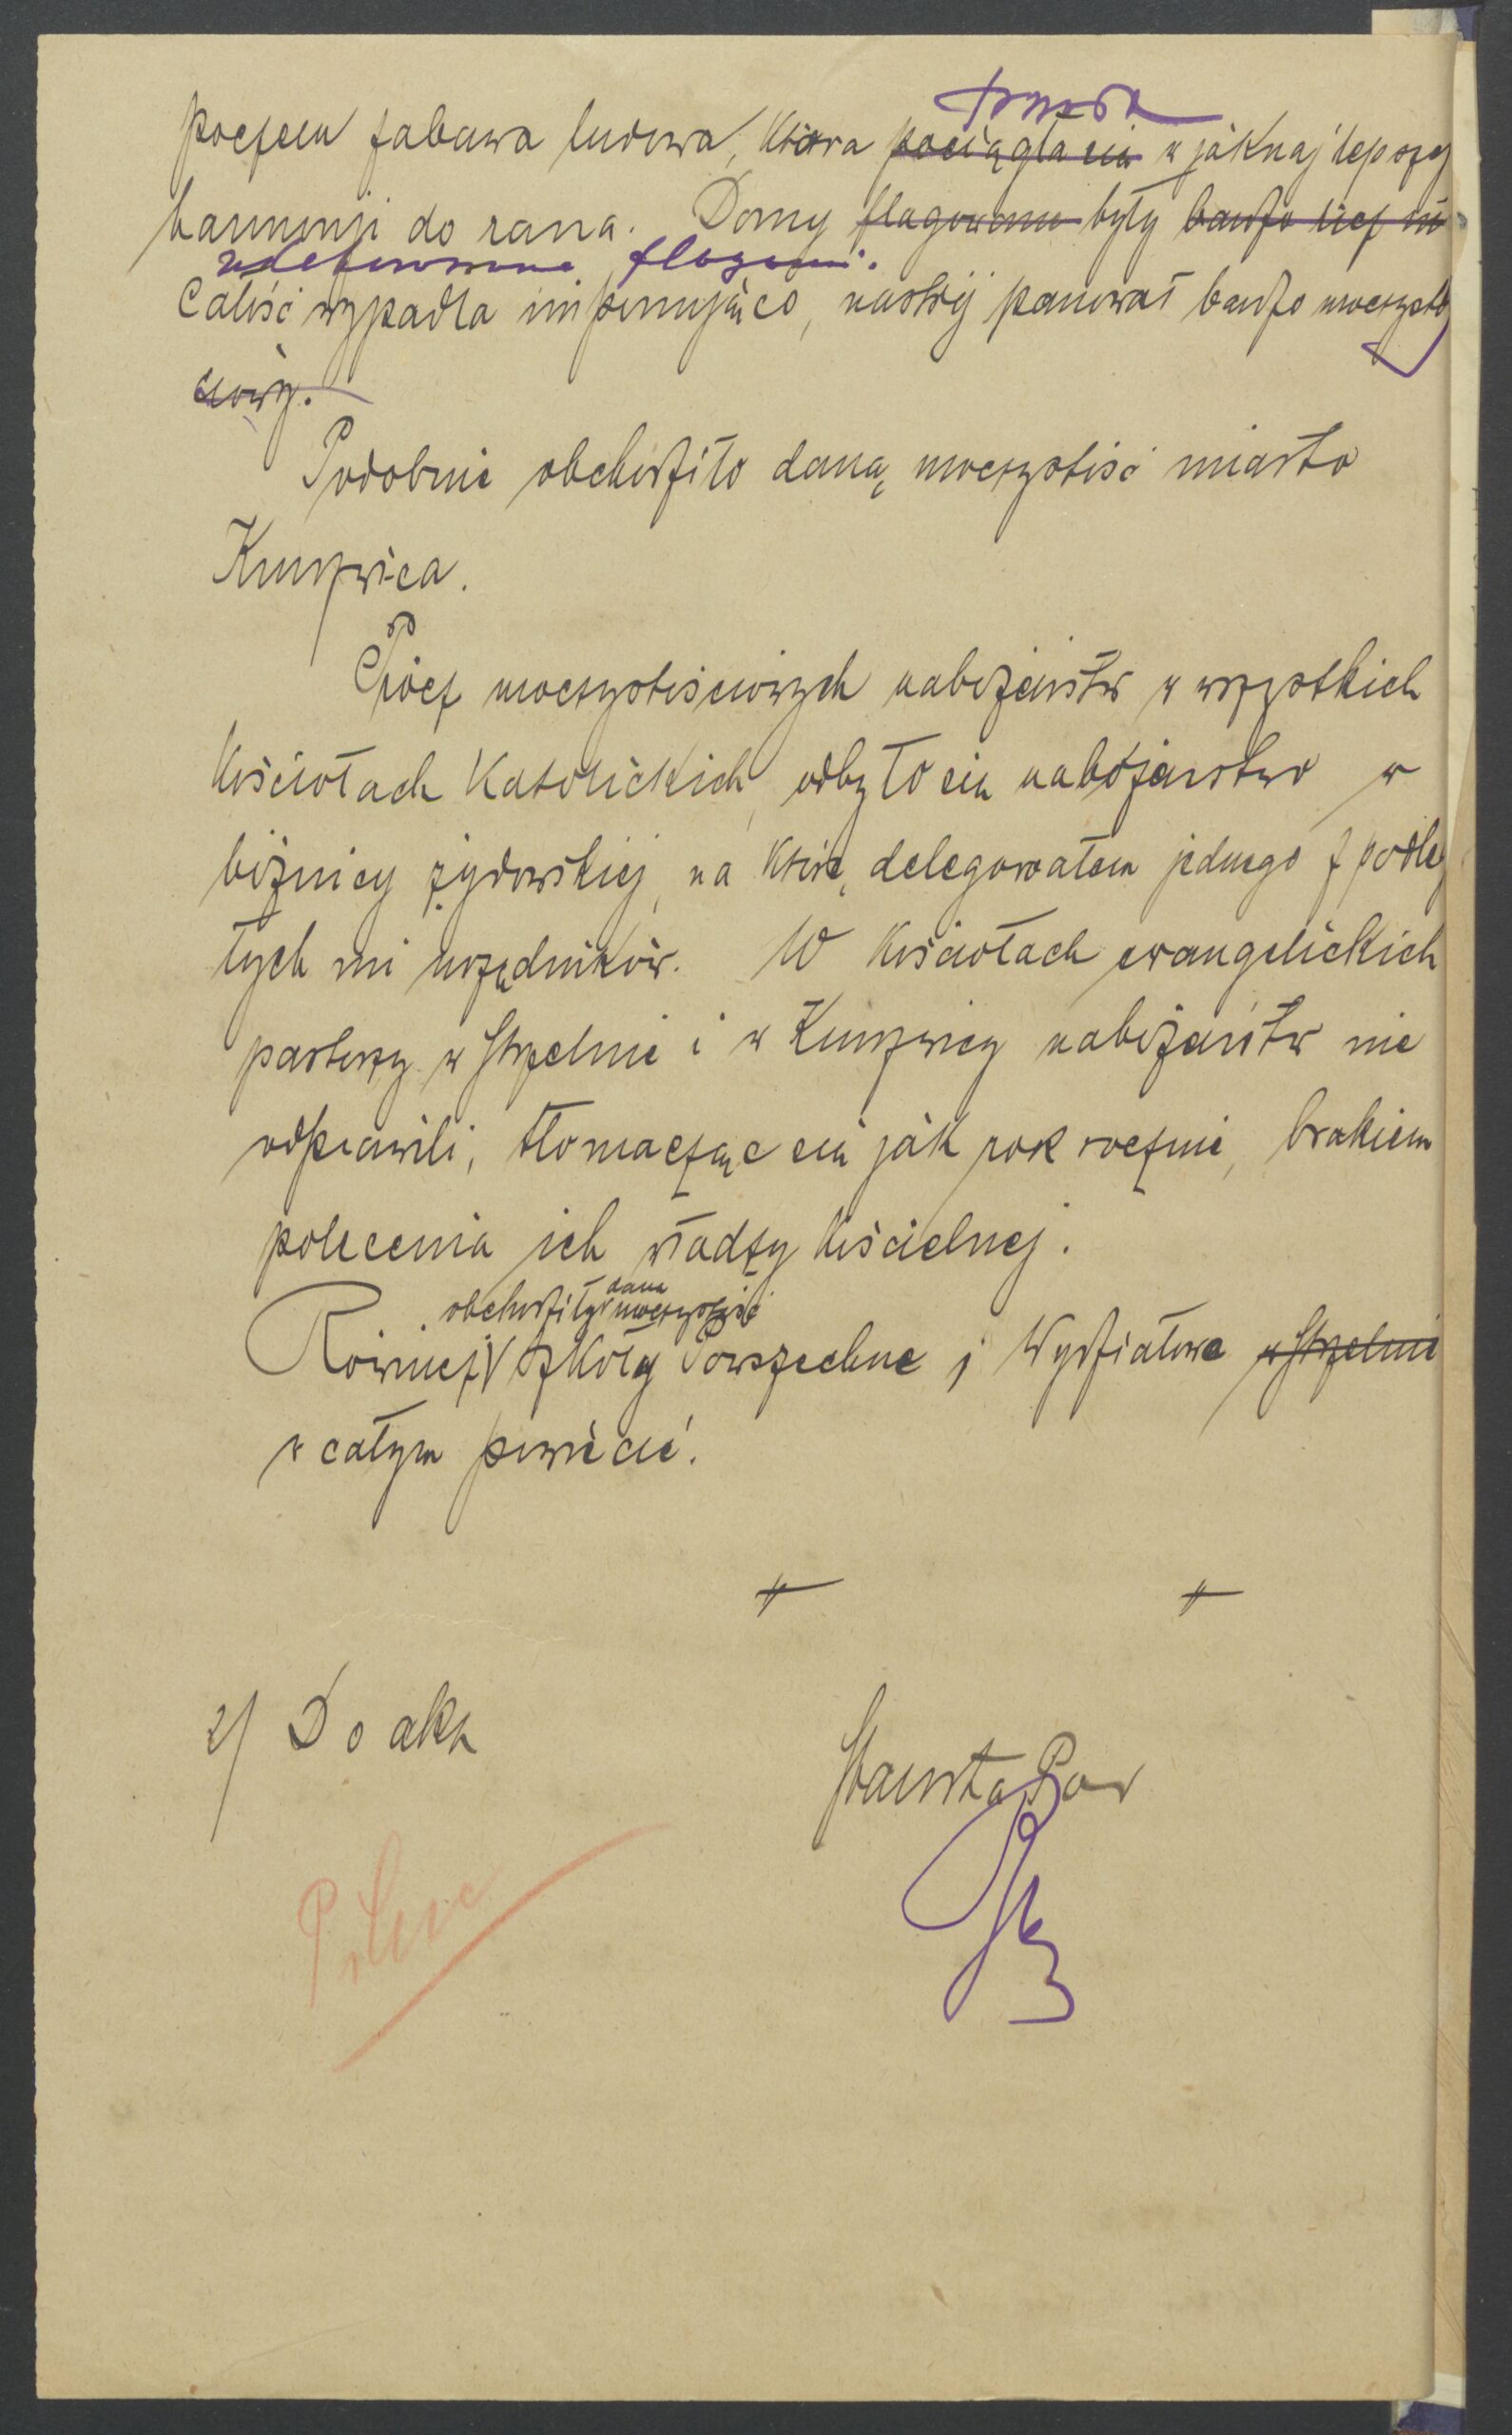 trwała
poczem zabawa ludowa, która pociągła się w jaknajlepszej
harmonji do rana. Domy flagowane były bardzo licznie
udekorowane flagami.
Całość wypadła imponująco, nastrój panował bardzo uroczysto
ściowy.
Podobnie obchodziło daną uroczystość miasto
Kruszwica.
Prócz uroczystościowych nabożeństw w wszystkich
kościołach katolickich, odbyło się nabożeństwo w
bóżnicy żydowskiej, na które delegowałem jednego z podle
łych mi urzędników. W kościołach ewangelickich
pastorzy w Strzelnie i w Kruszwicy nabożeństw nie
odprawili, tłomacząc się jak rok rocznie, brakiem
polecenia ich władzy kościelnej.
obchodziły daną uroczystość
Również szkoły Powszechne i Wydziałowe w Strzelnie
w całym powiecie.
2/ Do akt
Starosta Pow